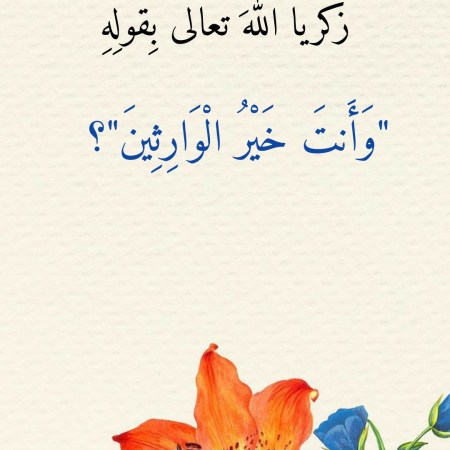 زكريا اللهَ تعالى بِقولِهِ
"وَأَنتَ خَيْرُ الْوَارِثِينَ"؟